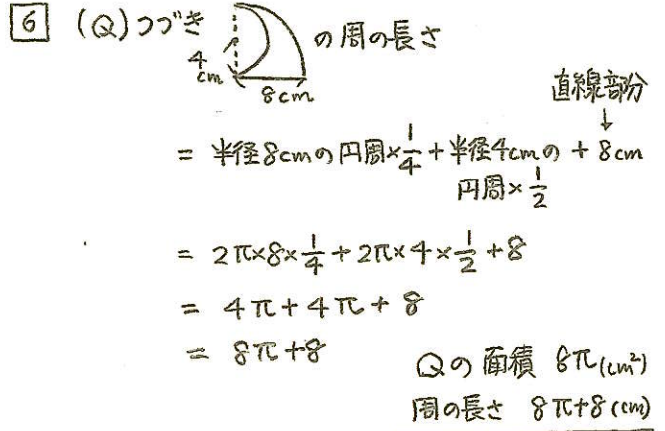 6 (Q)つづき の周の長さ
4cm
8cm
直線部分
↓
= 半径8cmの円周×1/4+半径4cmの円周×1/2+8cm
= 2π×8×1/4+2π×4×1/2+8
= 4π+4π+8
= 8π+8
Qの面積 8π(cm²)
周の長さ 8π+8(cm)